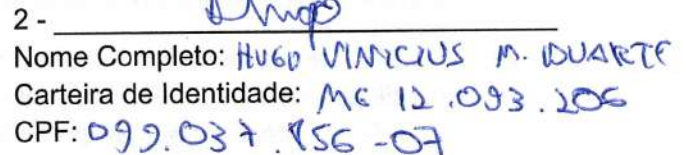 2 - Hugo
Nome Completo: HUGO VINICIUS M. DUARTE
Carteira de Identidade: MG 12.093.206
CPF: 099.037.856-07